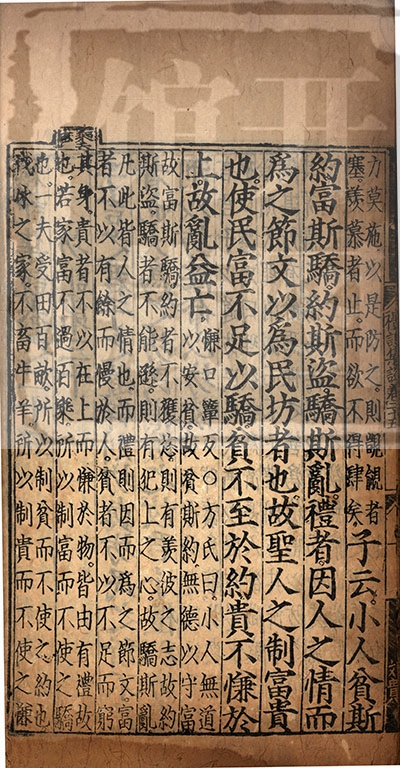 禮記集說卷
方莫施以是防之則覬覦者
塞羨慕者止而欲不得肆矣
子云小人貧斯
約富斯驕約斯盜驕斯亂禮者因人之情而
爲之節文以爲民坊者也故聖人之制富貴
也使民富不足以驕貧不至於約貴不慊於
上故亂益亡
慊口簟反○方氏曰小人無道
以安貧故貧斯約無德以守富
故富斯驕約者不獲恣則有羨彼之志故約
斯盜驕者不能遜則有犯上之心故驕斯亂
凡此皆人之情也而禮則因而爲之節文富
者不以有餘而慢於人貧者不以不足而窮
其身貴者不以在上而慊於物皆由有禮故
也若家富不過百乘所以制富而不使之驕
也一夫受田百畝所以制貧而不使之約也
伐冰之家不畜牛羊所以制貴而不使之慊